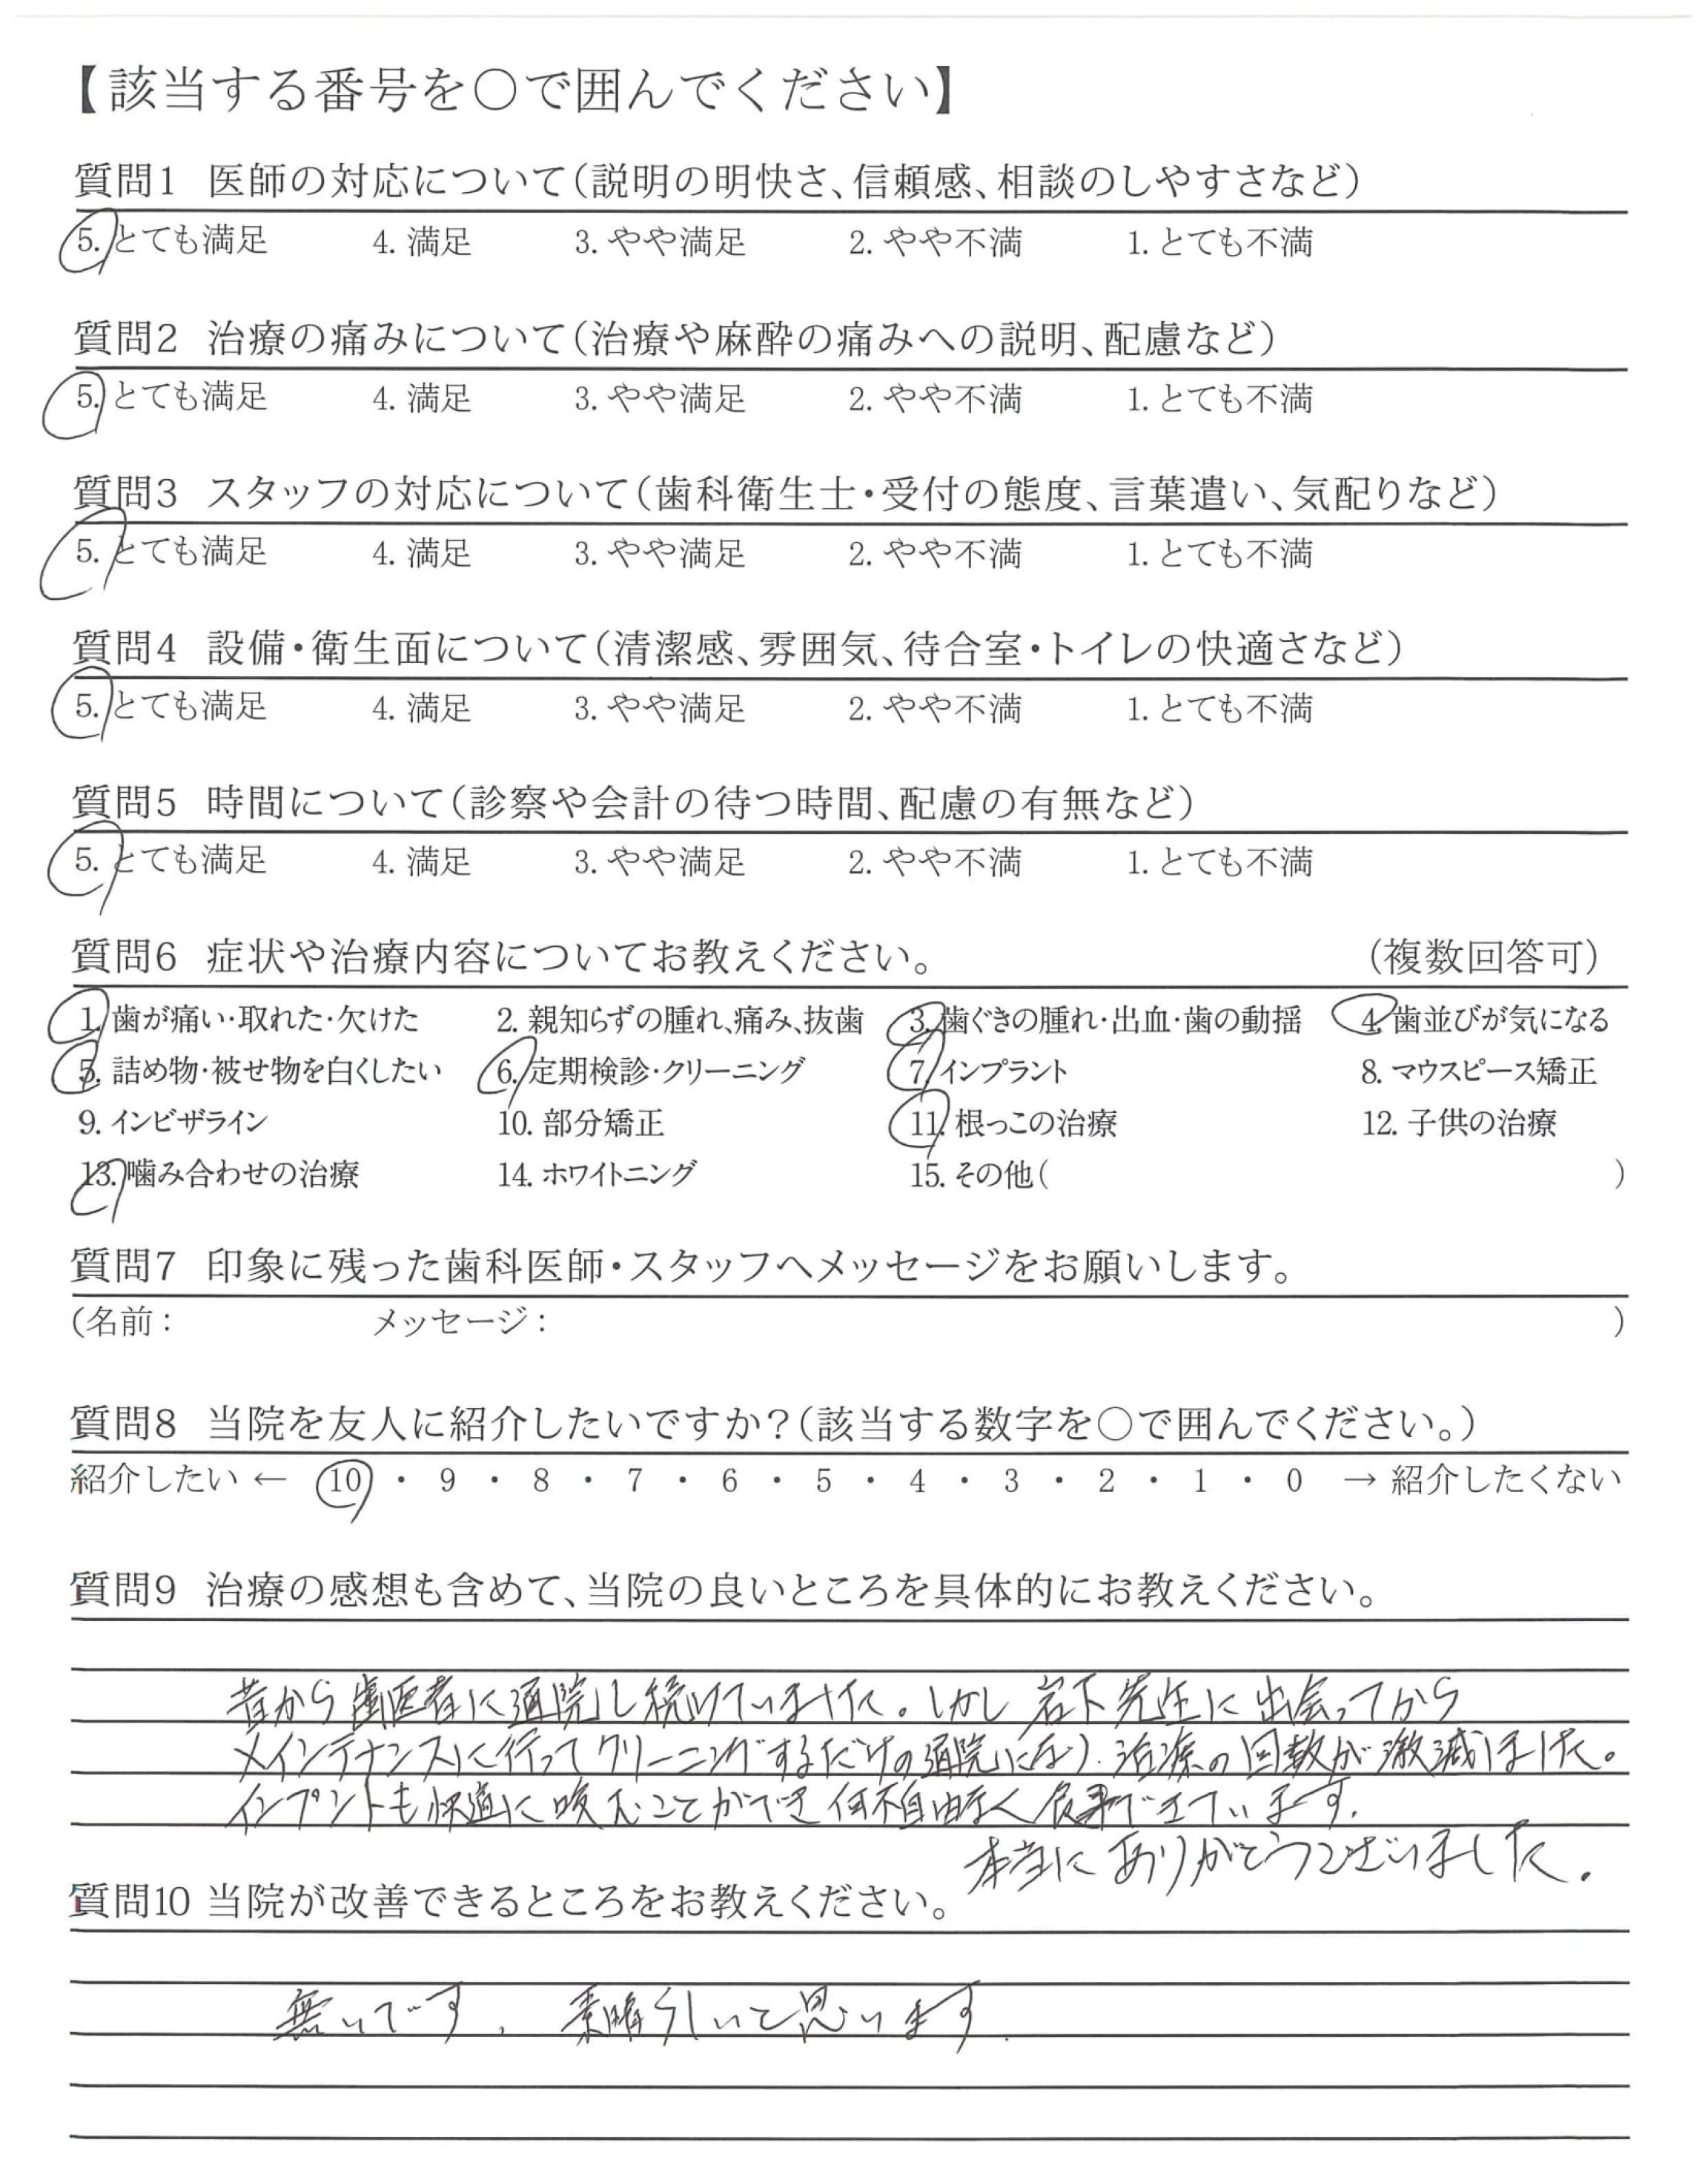 【該当する番号を○で囲んでください】
質問1 医師の対応について(説明の明快さ、信頼感、相談のしやすさなど)
5. とても満足 4. 満足 3. やや満足 2. やや不満 1. とても不満
質問2 治療の痛みについて(治療や麻酔の痛みへの説明、配慮など)
5. とても満足 4. 満足 3. やや満足 2. やや不満 1. とても不満
質問3 スタッフの対応について(歯科衛生士・受付の態度、言葉遣い、気配りなど)
5. とても満足 4. 満足 3. やや満足 2. やや不満 1. とても不満
質問4 設備・衛生面について(清潔感、雰囲気、待合室・トイレの快適さなど)
5. とても満足 4. 満足 3. やや満足 2. やや不満 1. とても不満
質問5 時間について(診察や会計の待つ時間、配慮の有無など)
5. とても満足 4. 満足 3. やや満足 2. やや不満 1. とても不満
質問6 症状や治療内容についてお教えください。 (複数回答可)
1. 歯が痛い・取れた・欠けた 2. 親知らずの腫れ、痛み、抜歯 3. 歯ぐきの腫れ・出血・歯の動揺 4. 歯並びが気になる
5. 詰め物・被せ物を白くしたい 6. 定期検診・クリーニング 7. インプラント 8. マウスピース矯正
9. インビザライン 10. 部分矯正 11. 根っこの治療 12. 子供の治療
13. 噛み合わせの治療 14. ホワイトニング 15. その他( )
質問7 印象に残った歯科医師・スタッフへメッセージをお願いします。
(名前: メッセージ: )
質問8 当院を友人に紹介したいですか?(該当する数字を○で囲んでください。)
紹介したい ← 10 ・ 9 ・ 8 ・ 7 ・ 6 ・ 5 ・ 4 ・ 3 ・ 2 ・ 1 ・ 0 → 紹介したくない
質問9 治療の感想も含めて、当院の良いところを具体的にお教えください。
昔から歯医者に通院し続けていました。しかし 岩下先生に出会ってから
メインテナンスに行ってクリーニングするだけの通院になり、治療の回数が激減しました。
インプントも快適に咬むことができ何不自由なく食事できています。
本当にありがとうございました。
質問10 当院が改善できるところをお教えください。
無いです、素晴らしいと思います.